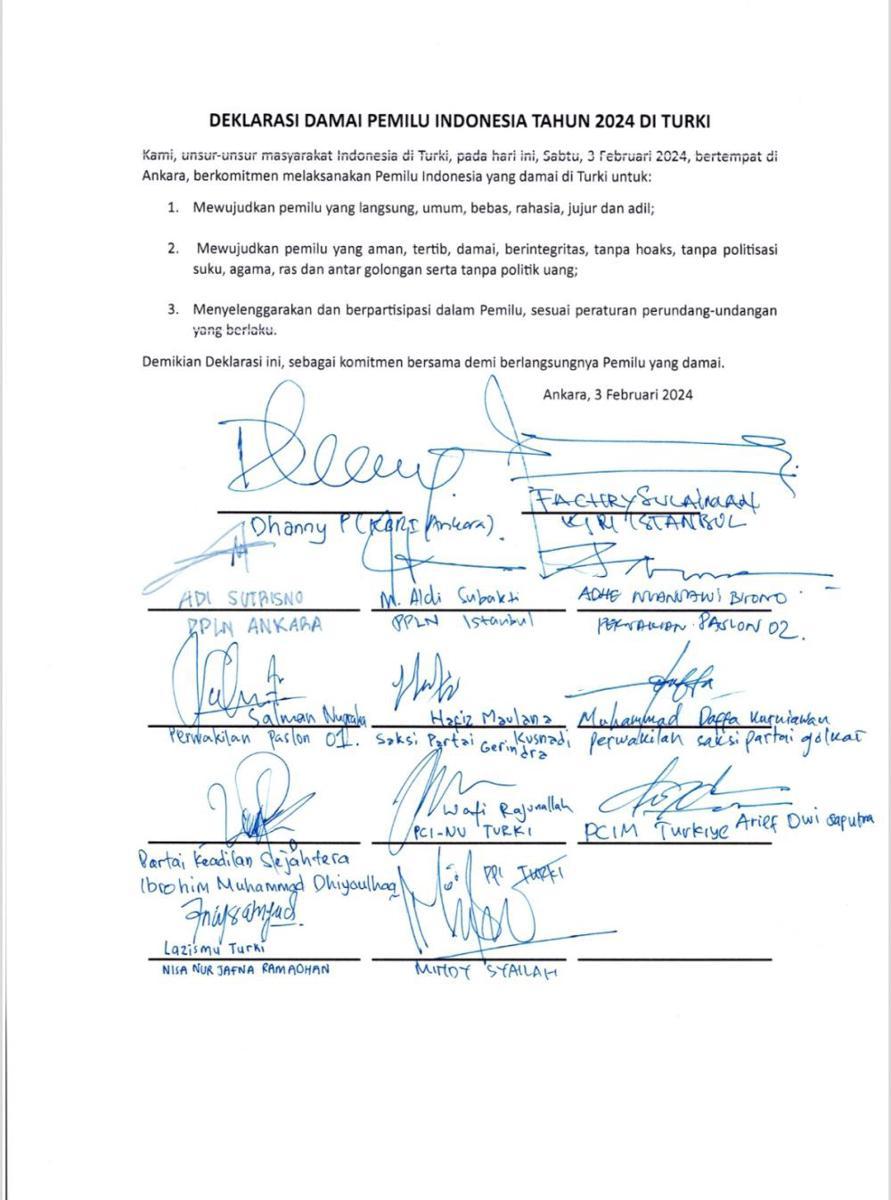 DEKLARASI DAMAI PEMILU INDONESIA TAHUN 2024 DI TURKI
Kami, unsur-unsur masyarakat Indonesia di Turki, pada hari ini, Sabtu, 3 Februari 2024, bertempat di
Ankara, berkomitmen melaksanakan Pemilu Indonesia yang damai di Turki untuk:
1. Mewujudkan pemilu yang langsung, umum, bebas, rahasia, jujur dan adil;
2. Mewujudkan pemilu yang aman, tertib, damai, berintegritas, tanpa hoaks, tanpa politisasi
suku, agama, ras dan antar golongan serta tanpa politik uang;
3. Menyelenggarakan dan berpartisipasi dalam Pemilu, sesuai peraturan perundang-undangan
yang berlaku.
Demikian Deklarasi ini, sebagai komitmen bersama demi berlangsungnya Pemilu yang damai.
Ankara, 3 Februari 2024
Dhanny P (KBRI Ankara).
FACHRY SULAIMAN
KJRI ISTANBUL
ADI SUTRISNO
PPLN ANKARA
M. Aldi Subakti
PPLN Istanbul
ADHE
PASLON 02.
Salman Nugraha
Perwakilan Paslon 01.
Hafiz Maulana
Kusnadi
Saksi Partai Gerindra
Muhammad Daffa Kurniawan
perwakilan saksi partai golkar
Partai Keadilan Sejahtera
Ibrohim Muhammad Dhiyaulhaq
Wafi Rajunallah
PCI-NU TURKI
Arief Dwi Saputra
PCIM Türkiye
Lazismu Turki
NISA NUR JAFNA RAMADHAN
PPI TURKI
MINDY SYAILAH